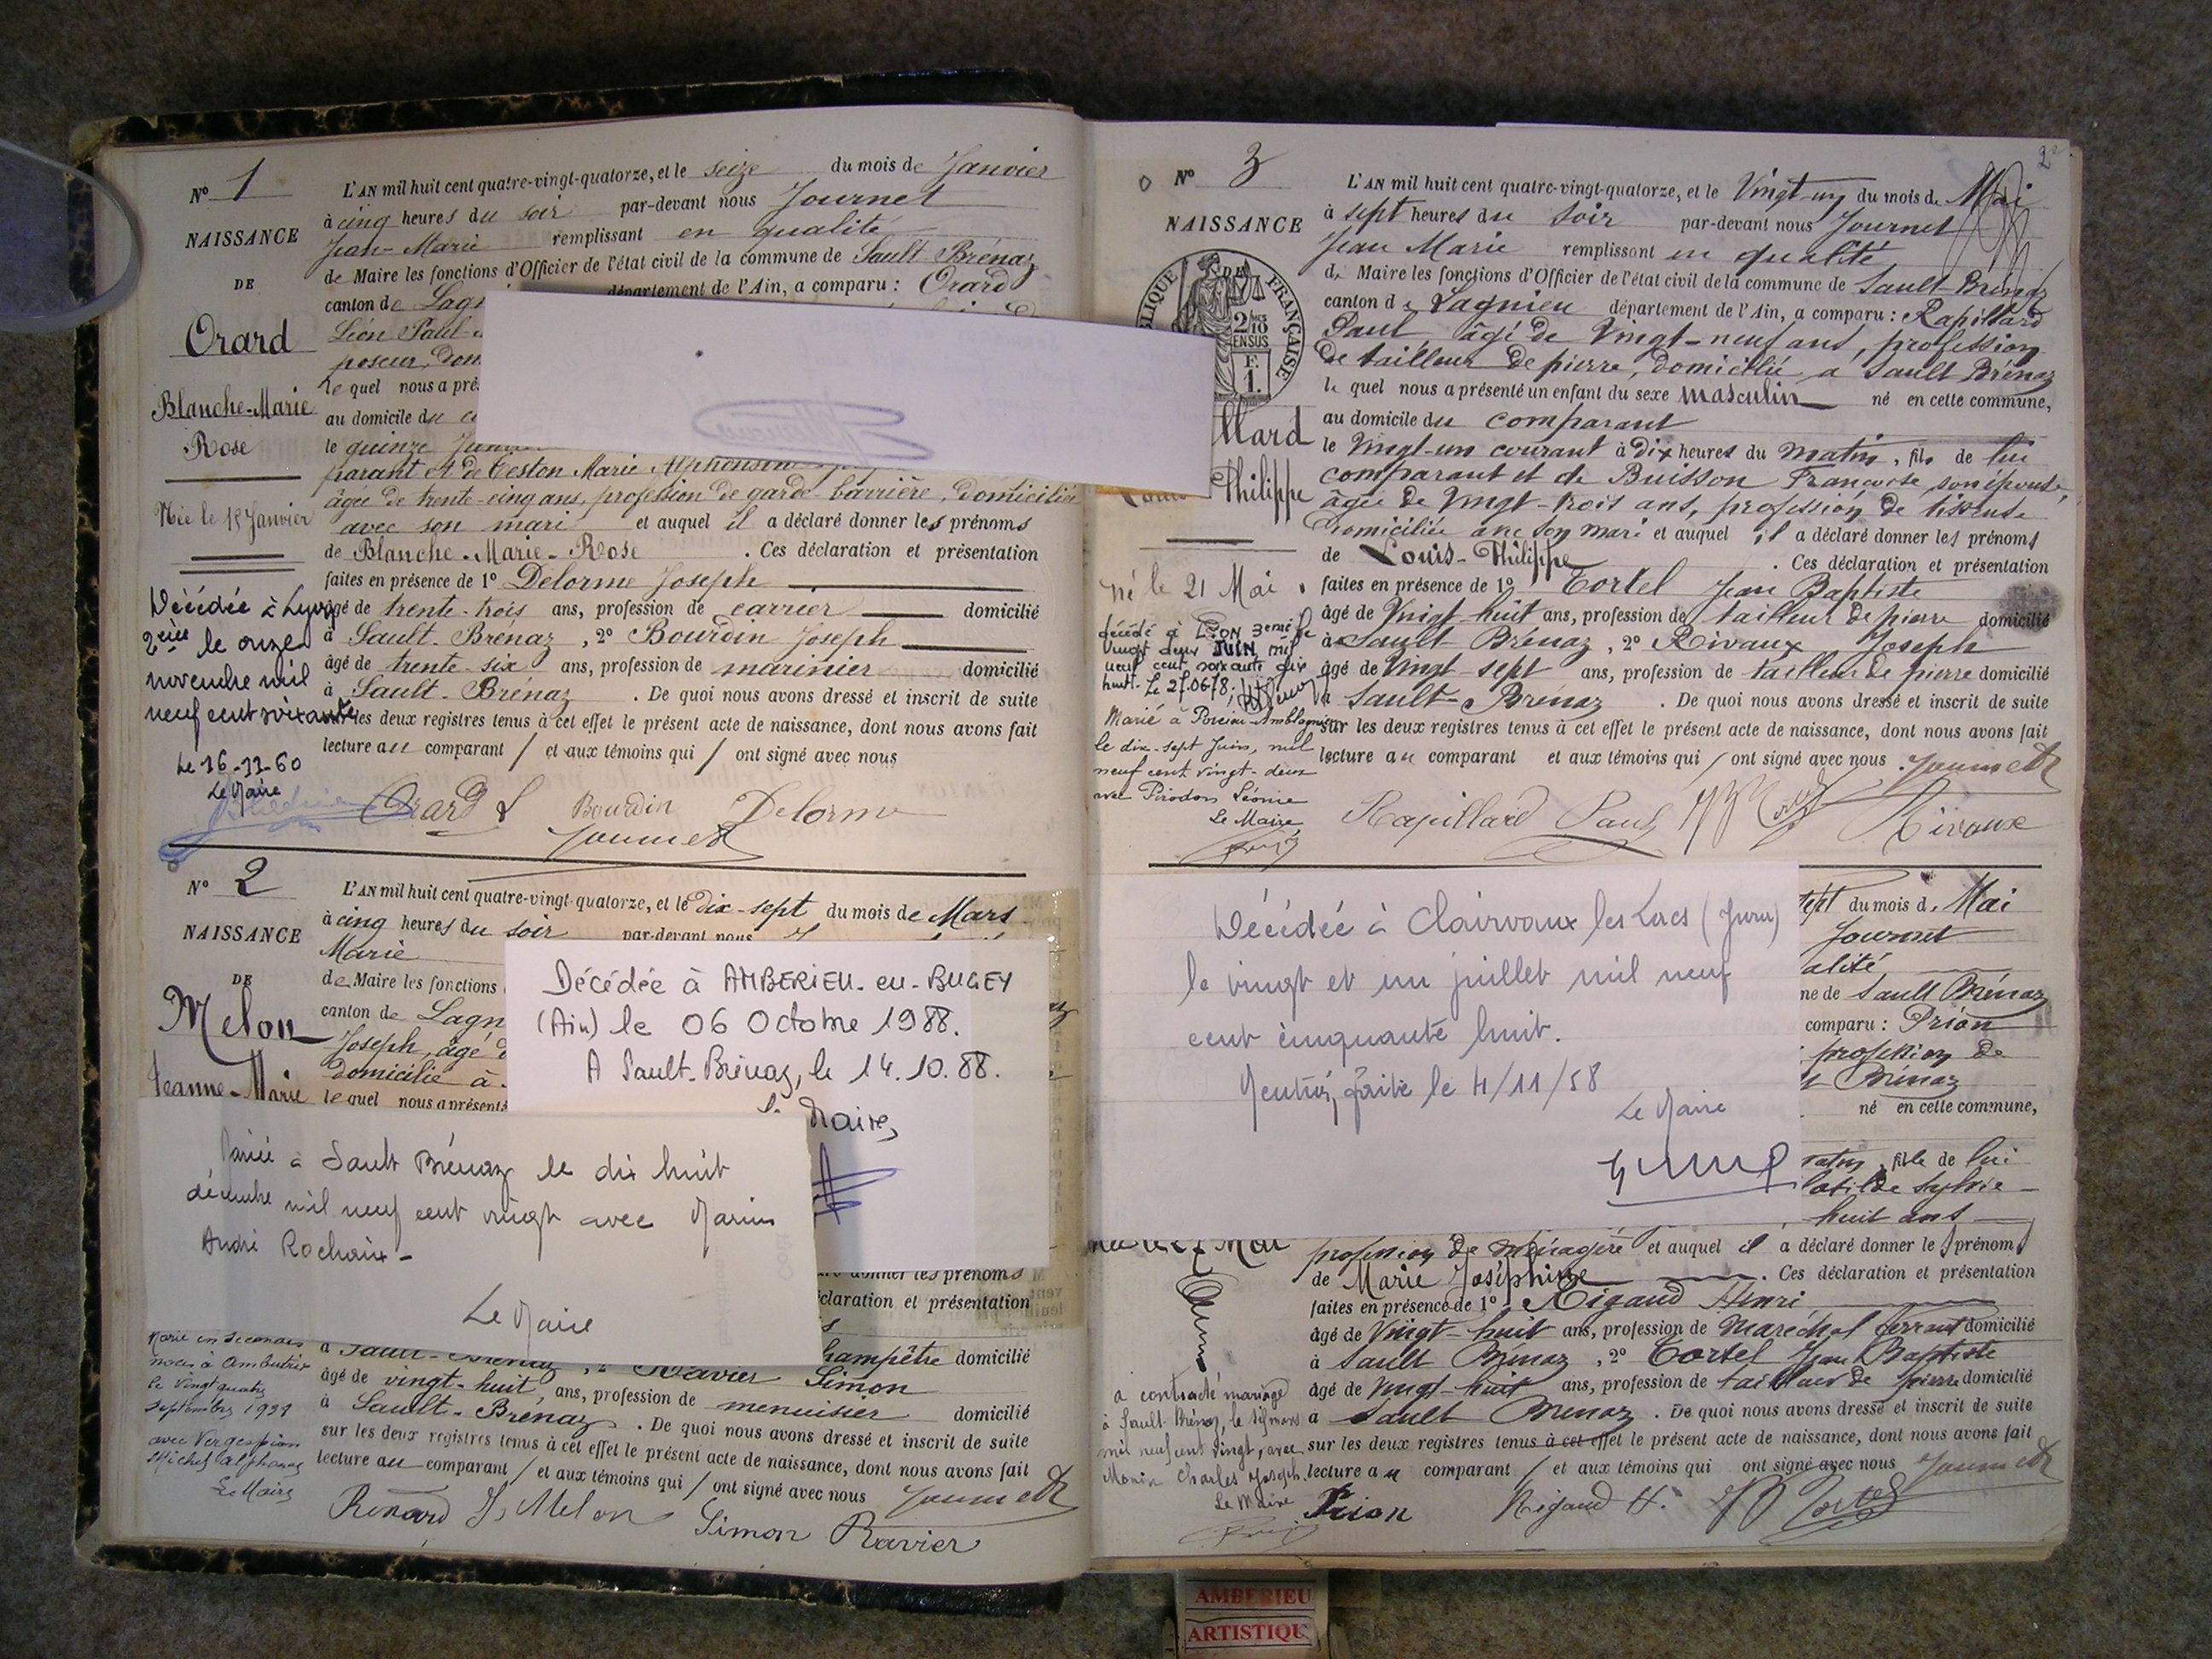 N° 1
NAISSANCE
DE
Orard
Blanche-Marie
Rose
Née le 15 Janvier
Décédée à Lyon
2ème le onze
novembre mil
neuf cent soixante
Le 16-11-60
Le Maire
L'AN mil huit cent quatre-vingt-quatorze, et le seize du mois de Janvier
à cinq heures du soir par-devant nous Journet
Jean-Marie remplissant en qualité
de Maire les fonctions d'Officier de l'état civil de la commune de Sault-Brénaz
canton de Lagn département de l'Ain, a comparu : Orard
Léon Paul
poseur, dom
le quel nous a pré
au domicile du c
le quinze
parant et de Teston Marie Alphonsine
âgée de trente-cinq ans, profession de garde-barrière, domiciliée
avec son mari et auquel il a déclaré donner les prénoms
de Blanche-Marie-Rose . Ces déclaration et présentation
faites en présence de 1° Delorme Joseph
âgé de trente-trois ans, profession de carrier domicilié
à Sault-Brénaz , 2° Bourdin Joseph
âgé de trente-six ans, profession de marinier domicilié
à Sault-Brénaz . De quoi nous avons dressé et inscrit de suite
les deux registres tenus à cet effet le présent acte de naissance, dont nous avons fait
lecture au comparant / et aux témoins qui / ont signé avec nous
Orard L Bourdin Delorme
Journet
N° 2
NAISSANCE
DE
Melon
Jeanne-Marie
L'AN mil huit cent quatre-vingt-quatorze, et le dix-sept du mois de Mars
à cinq heures du soir par-devant nous
Marie
de Maire les fonctions
canton de Lagn
Joseph, âgé d
domicilié à
le quel nous a présenté
Décédée à AMBERIEU-en-BUGEY
(Ain) le 06 Octobre 1988.
A Sault-Brénaz, le 14.10.88.
Maire,
Mariée à Sault Brénaz le dix huit
décembre mil neuf cent vingt avec Marius
André Rochaix-
Le Maire
donner les prénoms
déclaration et présentation
champêtre domicilié
à Sault-Brénaz, 2° Ravier Simon
âgé de vingt-huit ans, profession de menuisier domicilié
à Sault-Brénaz . De quoi nous avons dressé et inscrit de suite
sur les deux registres tenus à cet effet le présent acte de naissance, dont nous avons fait
lecture au comparant / et aux témoins qui / ont signé avec nous Journet
Renard J. Melon Simon Ravier
Marié en secondes
noces à Ambutrix
le vingt quatre
septembre
avec Vergespion
Michel Alphonse
Le Maire
2
N° 3
NAISSANCE
RÉPUBLIQUE FRANÇAISE
2/10
EN SUS
F.
1.
llard
Louis Philippe
né le 21 Mai
décédé à LYON 3eme le
vingt deux JUIN mil
neuf cent soixante dix
huit. Le 27.06.78,
Marié à Porcieu-Amblagnieu
le dix-sept Juin, mil
neuf cent vingt-deux
avec Pirodon Léonie
Le Maire,
L'AN mil huit cent quatre-vingt-quatorze, et le Vingt-un du mois de Mai
à sept heures du soir par-devant nous Journet
Jean Marie remplissant en qualité
de Maire les fonctions d'Officier de l'état civil de la commune de Sault-Brénaz
canton de Lagnieu département de l'Ain, a comparu : Rapillard
Paul, âgé de Vingt-neuf ans, profession
de tailleur de pierre, domicilié à Sault Brénaz
le quel nous a présenté un enfant du sexe masculin né en cette commune,
au domicile du comparant
le vingt-un courant à dix heures du matin, fils de lui
comparant et de Buisson Françoise, son épouse,
âgée de vingt-trois ans, profession de tisseuse
domiciliée avec son mari et auquel il a déclaré donner les prénoms
de Louis-Philippe . Ces déclaration et présentation
faites en présence de 1° Tortel Jean Baptiste
âgé de Vingt-huit ans, profession de tailleur de pierre domicilié
à Sault Brénaz , 2° Rivaux Joseph
âgé de Vingt-sept ans, profession de tailleur de pierre domicilié
à Sault-Brénaz . De quoi nous avons dressé et inscrit de suite
sur les deux registres tenus à cet effet le présent acte de naissance, dont nous avons fait
lecture au comparant et aux témoins qui / ont signé avec nous . Journet
Rapillard Paul JB Tortel Rivaux
Décédée à Clairvaux les Lacs (Jura)
le vingt et un juillet mil neuf
cent cinquante huit.
Mention faite le 4/11/58
Le Maire
sept du mois de Mai
Journet
alité
ne de Sault Brénaz
comparu : Prion
profession de
Brénaz
né en cette commune,
matin, fille de lui
lotilde Sylvie
huit ans
profession de ménagère et auquel il a déclaré donner les prénoms
de Marie Joséphine . Ces déclaration et présentation
faites en présence de 1° Rigaud Henri
âgé de Vingt-huit ans, profession de Maréchal ferrant domicilié
à Sault Brénaz , 2° Tortel Jean Baptiste
âgé de vingt-huit ans, profession de tailleur de pierre domicilié
à Sault Brénaz . De quoi nous avons dressé et inscrit de suite
sur les deux registres tenus à cet effet le présent acte de naissance, dont nous avons fait
lecture au comparant / et aux témoins qui ont signé avec nous Journet
Prion Rigaud H. JB Tortel
a contracté mariage
à Sault-Brénaz, le six mars
mil neuf cent vingt, avec
Monin Charles Joseph.
Le Maire
AMBERIEU
ARTISTIQU